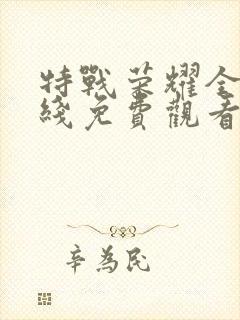 特戰荣耀全
綫免費觀看
辛為民